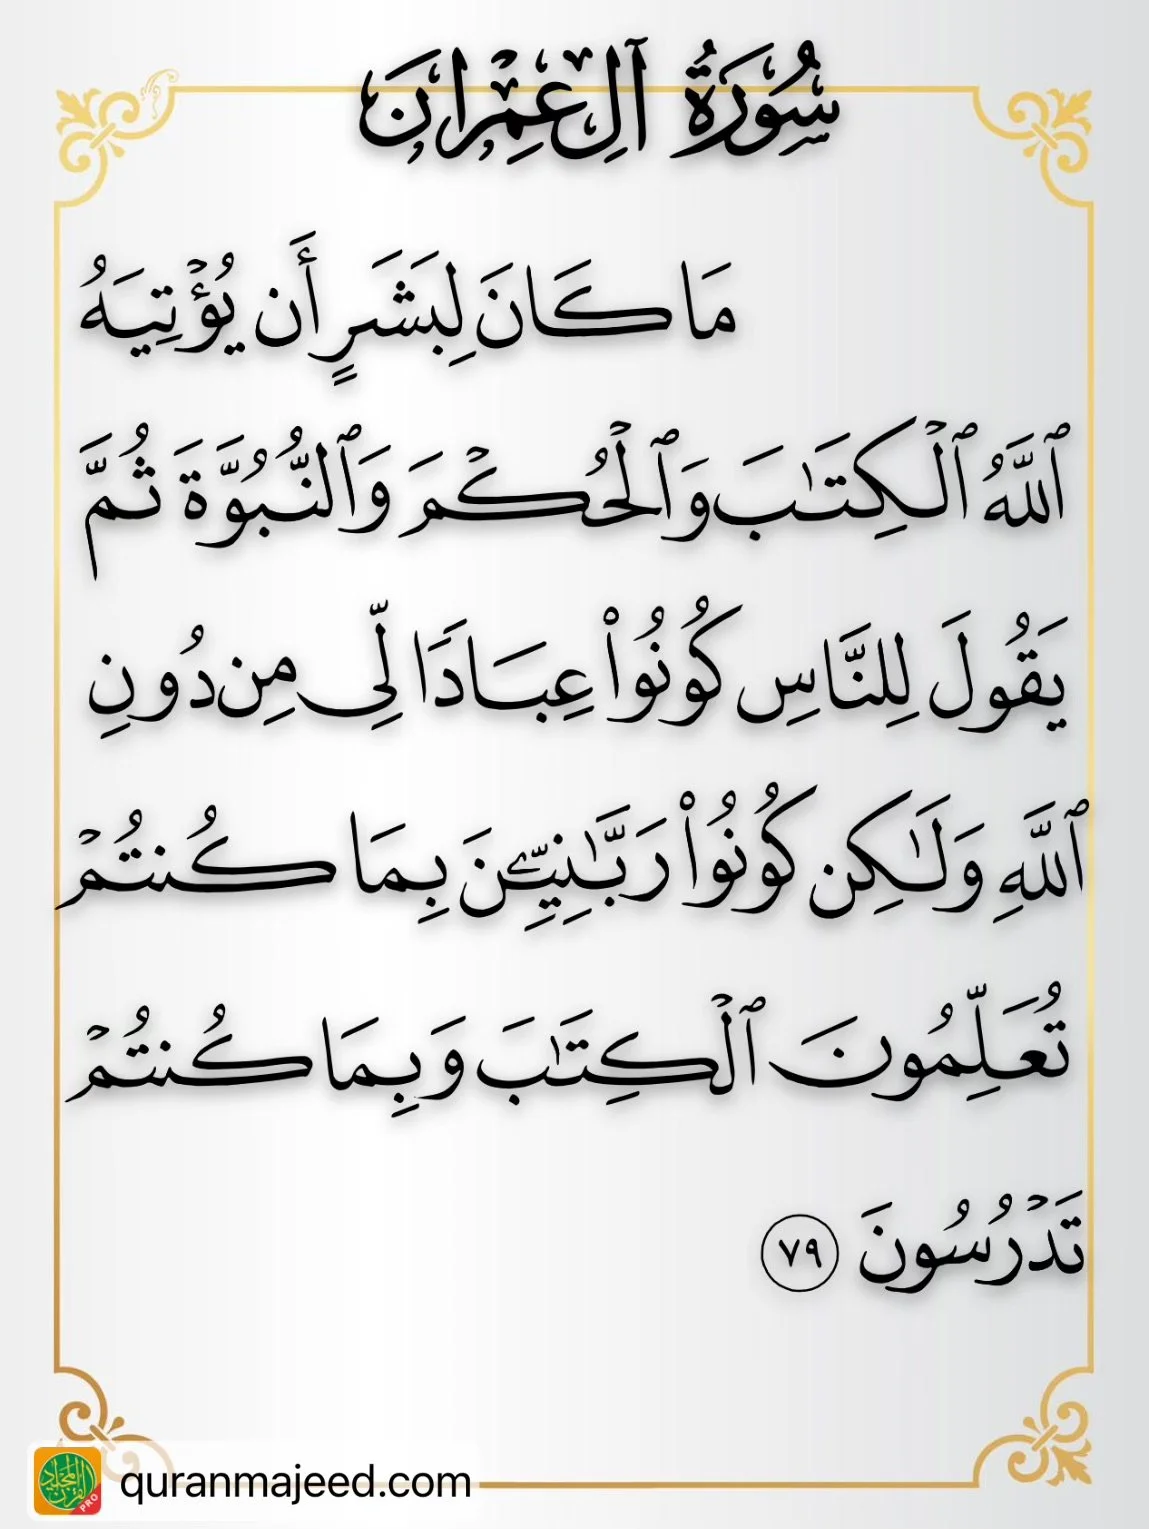 سُورَةُ آلِ عِمْرَانَ
مَا كَانَ لِبَشَرٍ أَن يُؤْتِيَهُ
ٱللَّهُ ٱلْكِتَـٰبَ وَٱلْحُكْمَ وَٱلنُّبُوَّةَ ثُمَّ
يَقُولَ لِلنَّاسِ كُونُوا۟ عِبَادًا لِّى مِن دُونِ
ٱللَّهِ وَلَـٰكِن كُونُوا۟ رَبَّـٰنِيِّـۧنَ بِمَا كُنتُمْ
تُعَلِّمُونَ ٱلْكِتَـٰبَ وَبِمَا كُنتُمْ
تَدْرُسُونَ ٧٩
quranmajeed.com